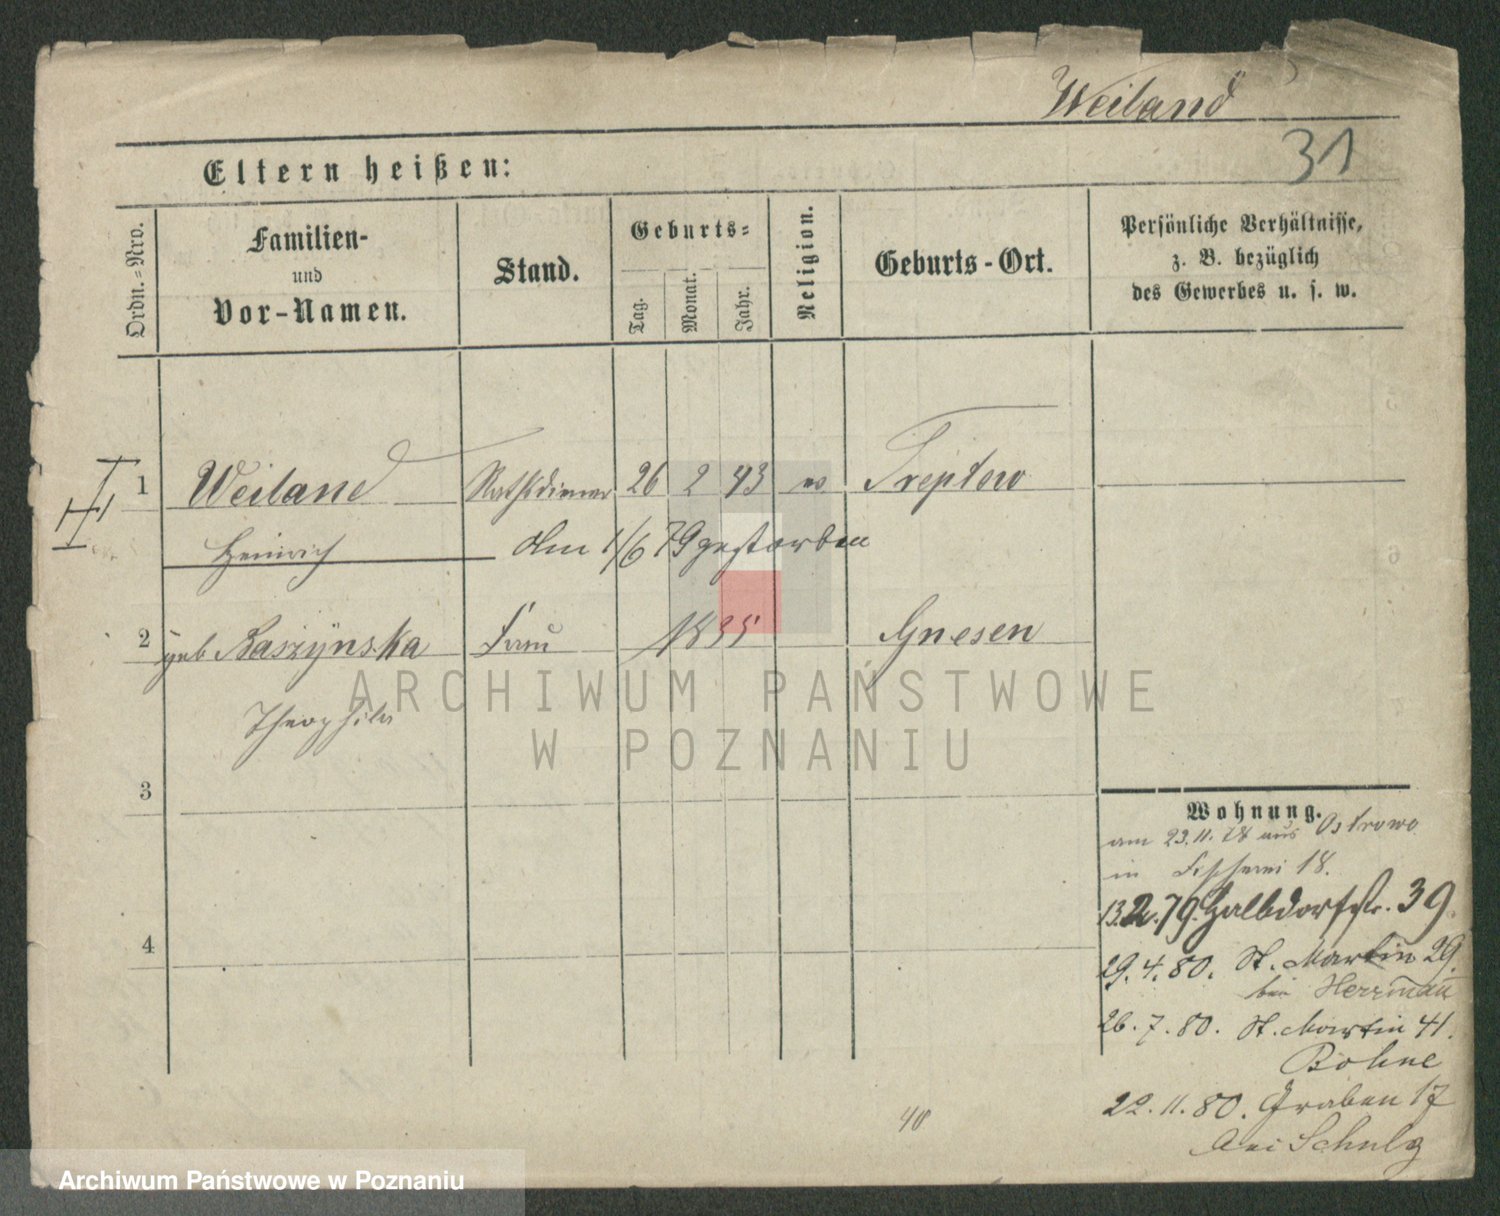 Weiland
31
Eltern heißen:
Ordn.=Nro.
Familien-
und
Vor-Namen.
Stand.
Geburts=
Tag.
Monat.
Jahr.
Religion.
Geburts-Ort.
Persönliche Verhältnisse,
z. B. bezüglich
des Gewerbes u. s. w.
1 Weiland Rathsdiener 26 2 43 ev Treptow
Heinrich den 1/6 79 gestorben
2 geb Frau 1835 Gnesen
Theophila
3
4
Wohnung.
am 23.11.78 aus Ostrowo
in Fischerei 18.
13.2.79. Halbdorfstr. 39
29.4.80. St. Martin 29.
bei Herrmann
26.7.80. St. Martin 41.
Bohne
22.11.80. Graben 17
bei Schulz
40
ARCHIWUM PAŃSTWOWE
W POZNANIU
Archiwum Państwowe w Poznaniu